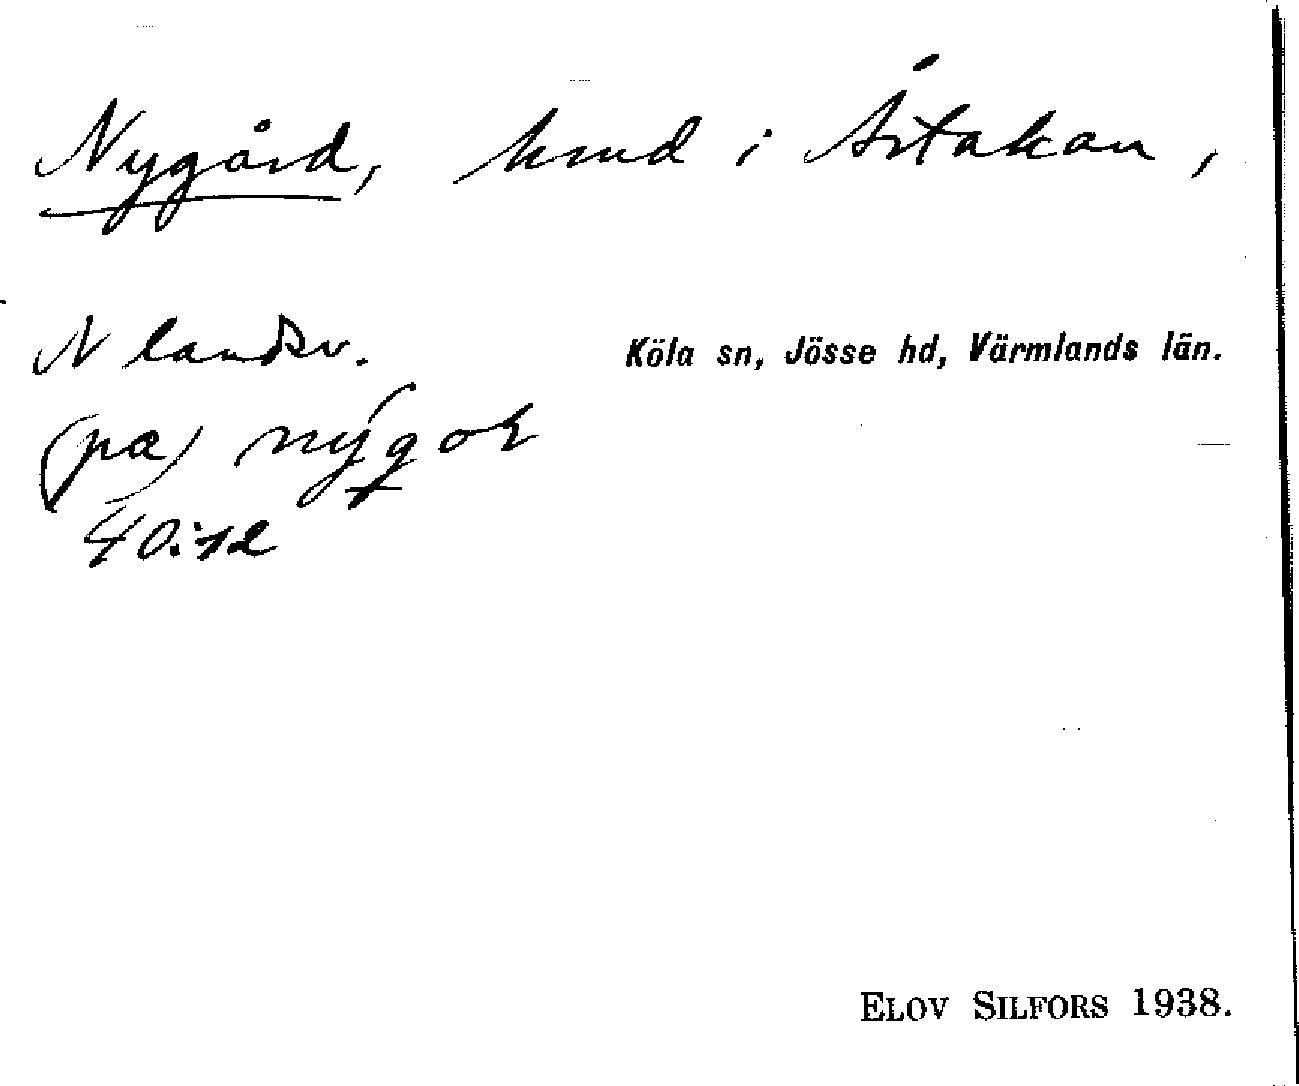 Nygård, hmd i Årtakan,
N landsv.
Köla sn, Jösse hd, Värmlands län.
(pa) nýgoɽ
40:12
ELOV SILFORS 1938.